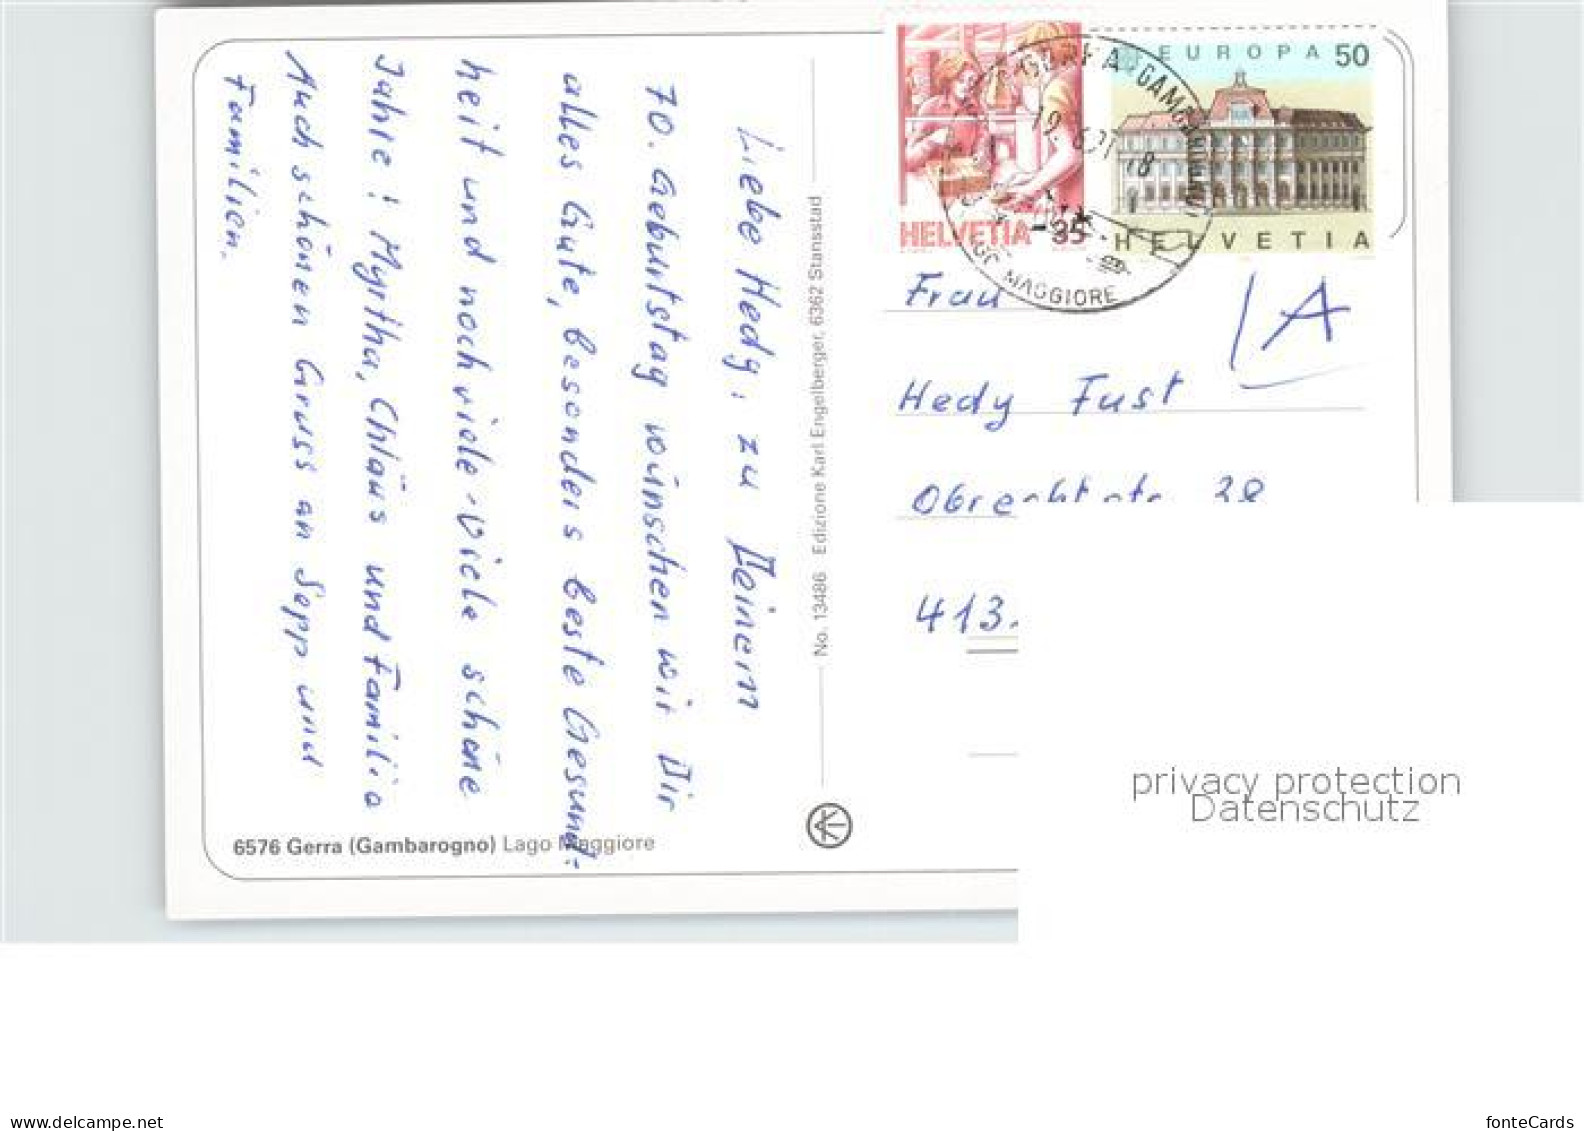 Liebe Hedy, zu Deinem
70. Geburtstag wünschen wir Dir
alles Gute, besonders beste Gesund-
heit und noch viele-viele schöne
Jahre! Myrtha, Chläus und Familie
Auch schönen Gruss an Sepp und
Familien.
No. 13486 Edizione Karl Engelberger, 6362 Stansstad
6576 Gerra (Gambarogno) Lago Maggiore
HELVETIA 35
EUROPA 50
HELVETIA
GERRA (GAMBAROGNO)
LAGO MAGGIORE
1A
Frau
Hedy Fust
413
privacy protection
Datenschutz
www.delcampe.net
fonteCards